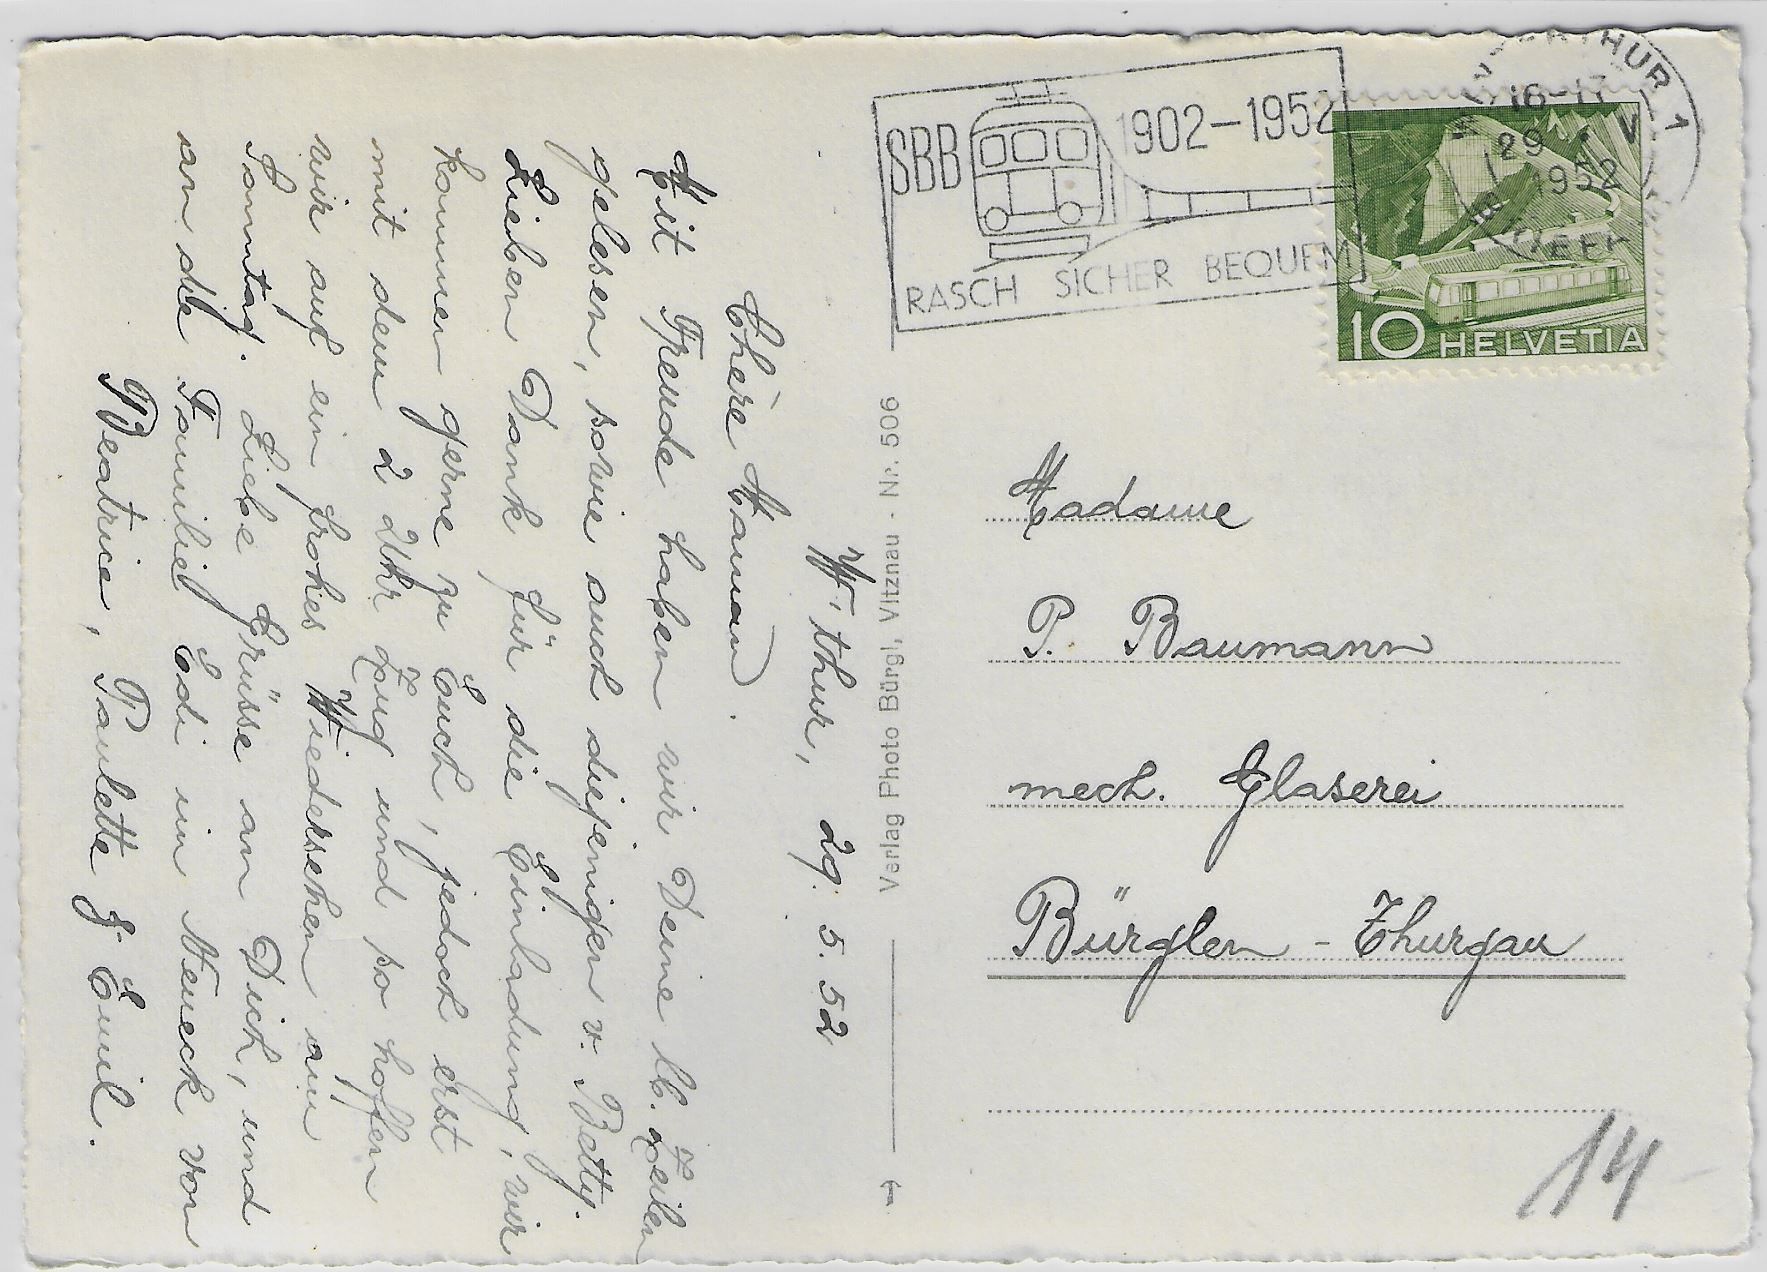 W'thur, 29. 5. 52
Chère Maman!
Mit Freude haben wir Deine lb. Zeilen
gelesen, sowie auch diejenigen v. Betty.
Lieben Dank für die Einladung, wir
kommen gerne zu Euch, jedoch erst
mit dem 2 Uhr Zug und so hoffen
wir auf ein frohes Wiedersehen am
Sonntag. Liebe Grüsse an Dich, und
an die Familie Edi im Neueck von
Beatrice, Paulette & Emil.
Verlag Photo Bürgi, Vitznau - Nr. 506
SBB 1902-1952
RASCH SICHER BEQUEM
WINTERTHUR 1
16-17
29. V
1952
10 HELVETIA
Madame
P. Baumann
mech. Glaserei
Bürglen - Thurgau
14